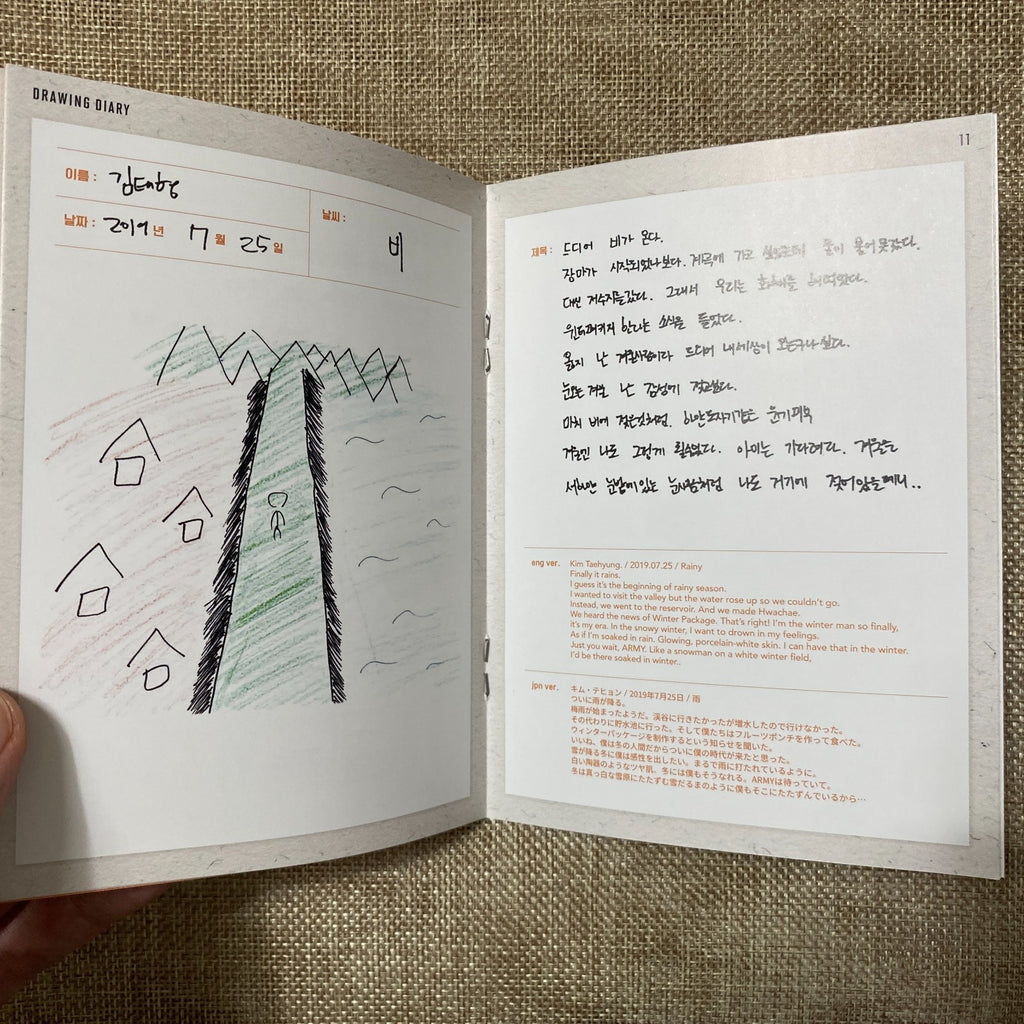 DRAWING DIARY
이름 : 김태형
날짜 : 2019년 7월 25일
날씨 : 비
11
제목 : 드디어 비가 온다.
장마가 시작되었나보다. 계곡에 가고 싶었는데 물이 불어 못갔다.
대신 저수지를갔다. 그래서 우리는 화채를 해먹었다.
윈터패키지 한다는 소식을 들었다.
옳지 난 겨울사람이라 드디어 내세상이 오는구나 싶다.
눈오는 겨울 난 감성에 젖고싶다.
마치 비에 젖은것처럼. 하얀도자기같은 윤기피부
겨울엔 나도 그렇게 될수있다. 아미는 기다려라. 겨울은
새하얀 눈밭에있는 눈사람처럼 나도 거기에 젖어있을테니..
eng ver.
Kim Taehyung. / 2019.07.25 / Rainy
Finally it rains.
I guess it's the beginning of rainy season.
I wanted to visit the valley but the water rose up so we couldn't go.
Instead, we went to the reservoir. And we made Hwachae.
We heard the news of Winter Package. That's right! I'm the winter man so finally,
it's my era. In the snowy winter, I want to drown in my feelings.
As if I'm soaked in rain. Glowing, porcelain-white skin. I can have that in the winter.
Just you wait, ARMY. Like a snowman on a white winter field,
I'd be there soaked in winter..
jpn ver.
キム・テヒョン / 2019年7月25日 / 雨
ついに雨が降る。
梅雨が始まったようだ。渓谷に行きたかったが増水したので行けなかった。
その代わりに貯水池に行った。そして僕たちはフルーツポンチを作って食べた。
ウィンターパッケージを制作するという知らせを聞いた。
いいね、僕は冬の人間だからついに僕の時代が来たと思った。
雪が降る冬に僕は感性を出したい。まるで雨に打たれているように。
白い陶器のようなツヤ肌。冬には僕もそうなれる。ARMYは待っていて。
冬は真っ白な雪原にたたずむ雪だるまのように僕もそこにたたずんでいるから…